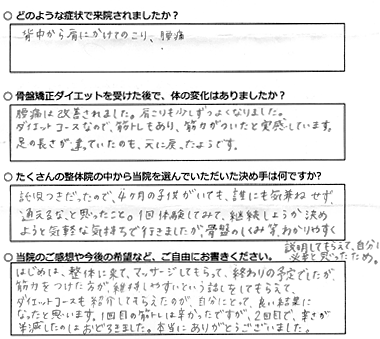 ○ どのような症状で来院されましたか？
背中から肩にかけてのこり、腰痛
○ 骨盤矯正ダイエットを受けた後で、体の変化はありましたか？
腰痛は改善されました。肩こりも少しずつよくなりました。
ダイエットコースなので、筋トレもあり、筋力がついたと実感しています。
足の長さが違っていたのも、元に戻ったようです。
○ たくさんの整体院の中から当院を選んでいただいた決め手は何ですか？
託児つきだったので、4ヶ月の子供がいても、誰にも気兼ねせず、
通えるな、と思ったこと。1回体験してみて、継続しようか決め
ようと気軽な気持ちで行きましたが、骨盤のしくみ等、わかりやすく
説明してもらえて、自分に
必要と思ったため。
○ 当院のご感想や今後の希望など、ご自由にお書きください。
はじめは、整体に来て、マッサージしてもらって、終わりの予定でしたが、
筋力をつけた方が、維持しやすいという話しをしてもらえて、
ダイエットコースも紹介してもらえたのが、自分にとって、良い結果に
なったと思います。1回目の筋トレは辛かったですが、2回目で、辛さが
半減したのはおどろきました。本当にありがとうございました。